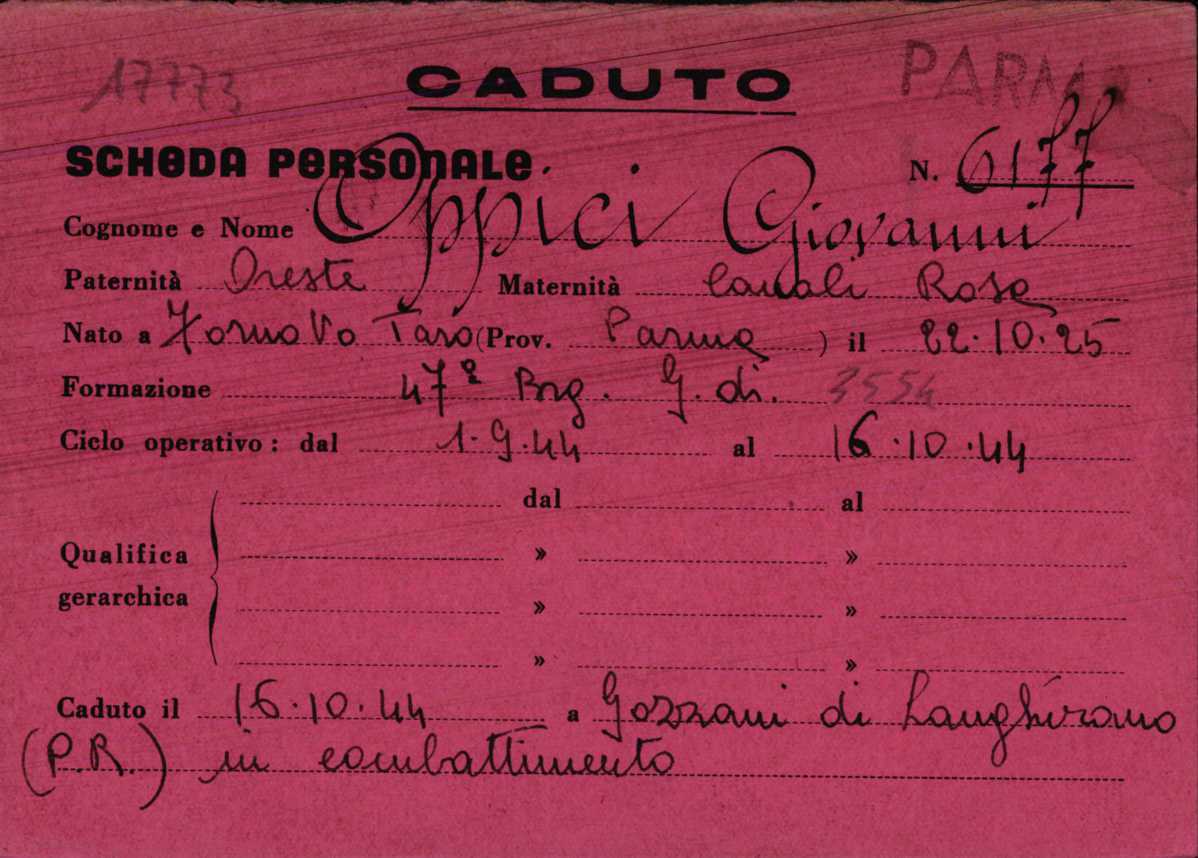 17773
CADUTO
PARMA
SCHEDA PERSONALE
N. 6177
Cognome e Nome Oppici Giovanni
Paternità Oreste Maternità Canali Rosa
Nato a Fornovo Taro (Prov. Parma ) il 22.10.25
Formazione 47ª Brg. G. di. 3554
Ciclo operativo: dal 1.9.44 al 16.10.44
dal al
Qualifica » »
gerarchica » »
» »
Caduto il 16.10.44 a Gozzani di Langhirano
(P.R.) in combattimento